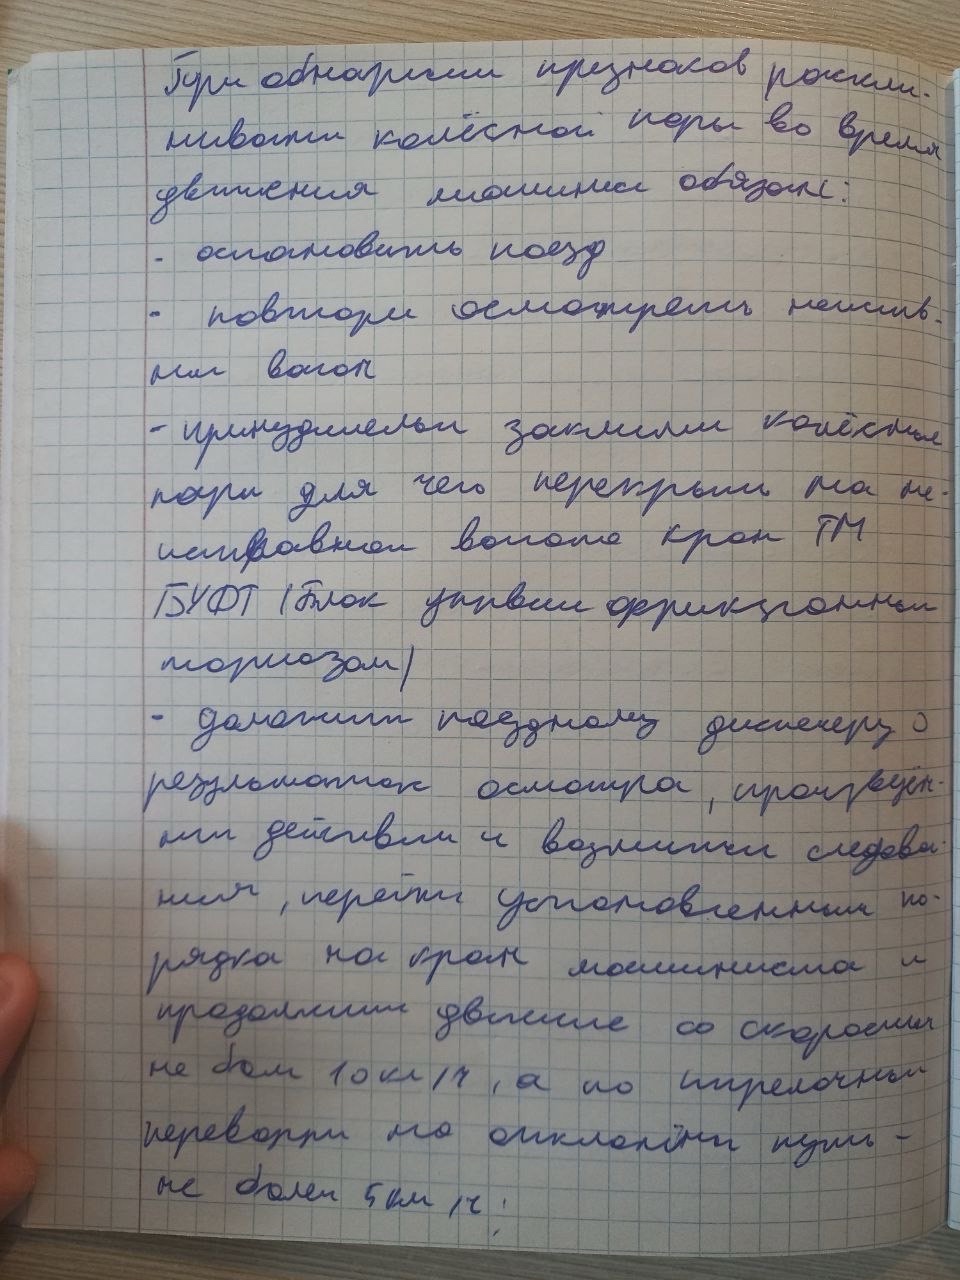 При обнаружении признаков расклин-
нивании колёсной пары во время
движения машинист обязан:
- остановить поезд
- повторн осмотреть неисправ-
ный вагон
- принудительн заклини колёсные
пары для чего перекрыть на не-
исправном вагоне кран ТМ
БУФТ (Блок управлен фрикционным
тормозом)
- доложить поездному диспетчеру о
результатах осмотра, произведён-
ных действи и возможн следова-
ния, перейти установленным по-
рядка на кран машиниста и
продолжить движение со скоростью
не боле 10 км/ч, а по стрелочным
переводам на отклонённ путь -
не более 5 км/ч;